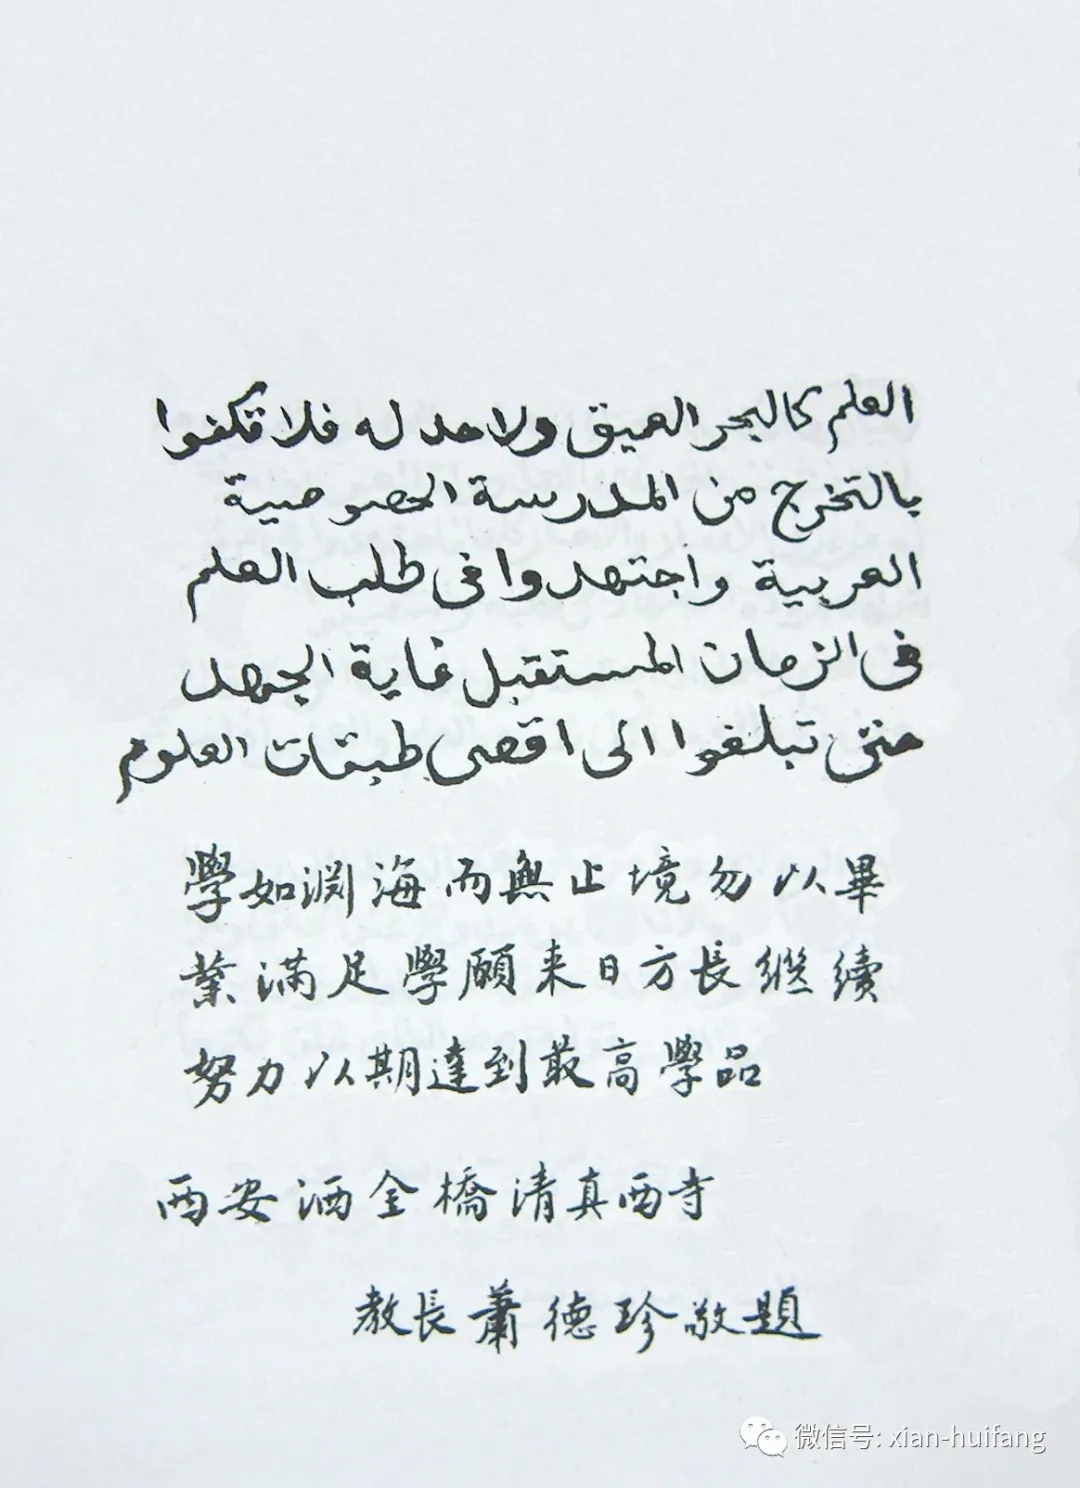 العلم كالبحر العميق ولا حد له فلا تكفوا
بالتخرج من المدرسة الخصوصية
العربية واجتهدوا فى طلب العلم
فى الزمان المستقبل غاية الجهد
حتى تبلغوا الى اقصى طبقات العلوم
學如渊海而無止境勿以畢
業滿足學願来日方長繼續
努力以期達到最高學品
西安洒金橋清真西寺
教長蕭德珍敬題
微信号: xian-huifang